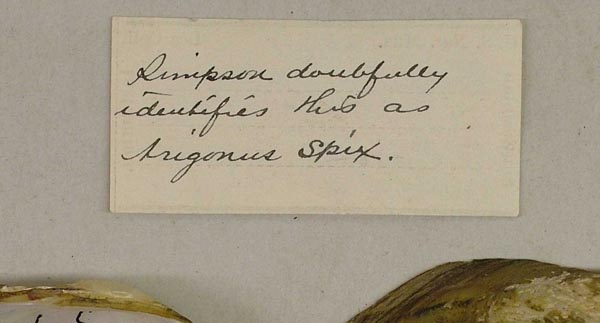 Simpson doubfully
identifies this as
trigonus Spix.